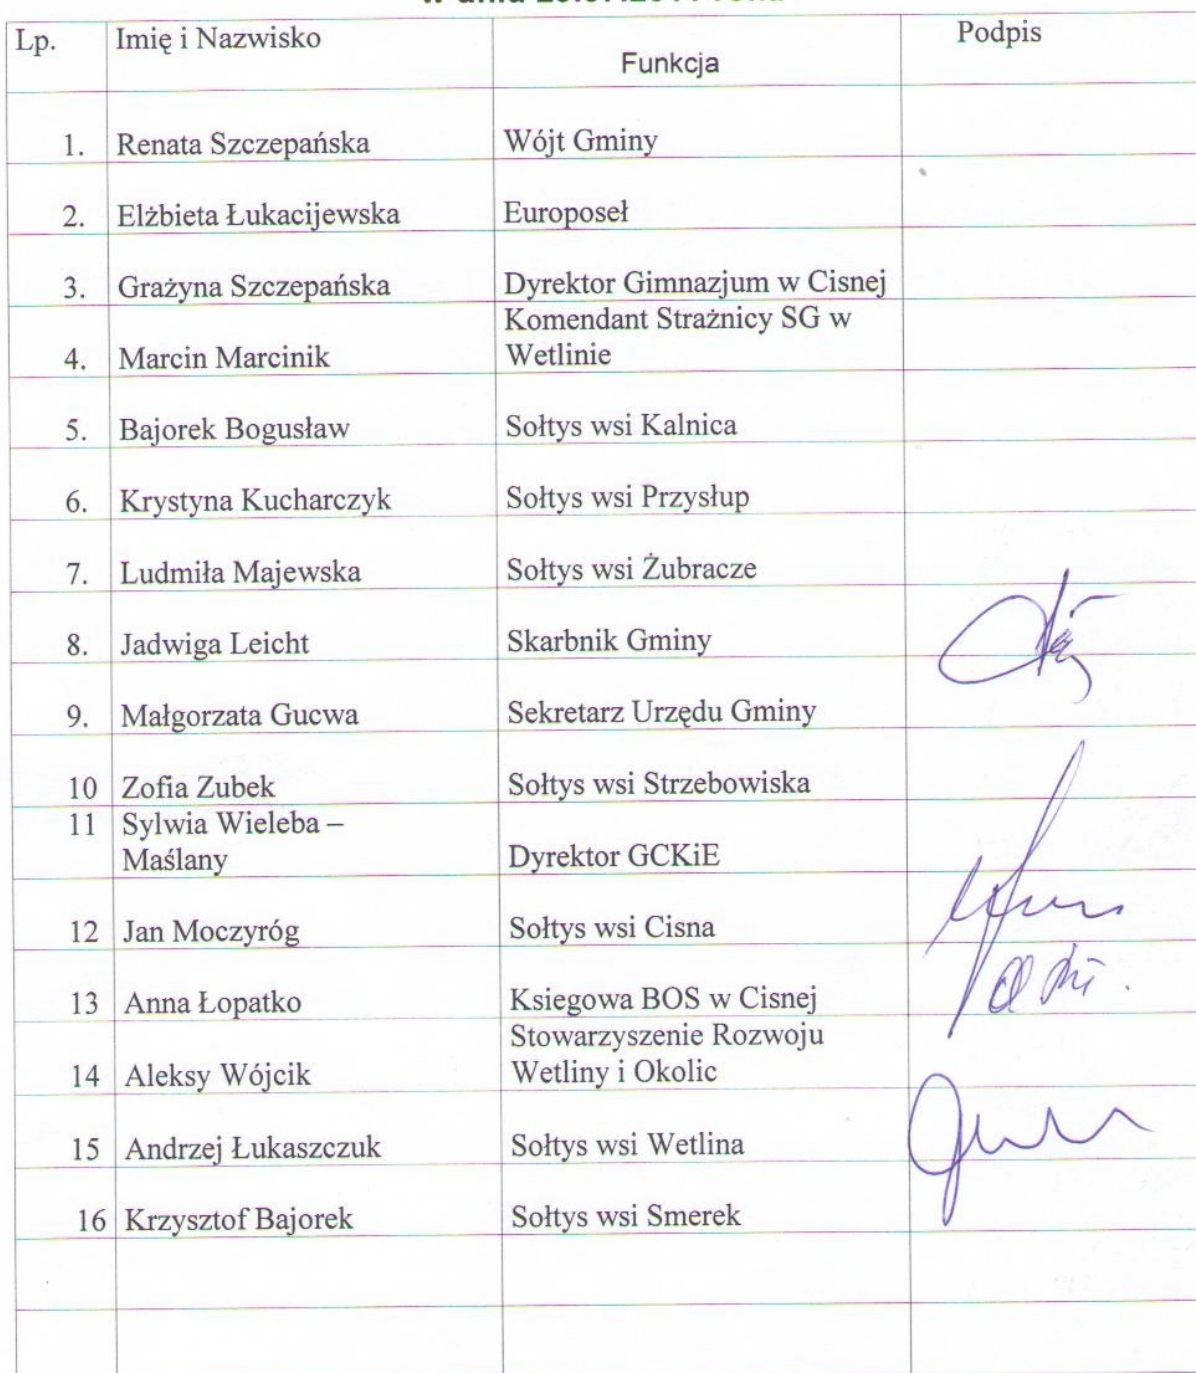 w dniu
Lp. Imię i Nazwisko Funkcja Podpis
1. Renata Szczepańska Wójt Gminy
2. Elżbieta Łukacijewska Europoseł
3. Grażyna Szczepańska Dyrektor Gimnazjum w Cisnej
4. Marcin Marcinik Komendant Strażnicy SG w
Wetlinie
5. Bajorek Bogusław Sołtys wsi Kalnica
6. Krystyna Kucharczyk Sołtys wsi Przysłup
7. Ludmiła Majewska Sołtys wsi Żubracze
8. Jadwiga Leicht Skarbnik Gminy
9. Małgorzata Gucwa Sekretarz Urzędu Gminy
10 Zofia Zubek Sołtys wsi Strzebowiska
11 Sylwia Wieleba –
Maślany Dyrektor GCKiE
12 Jan Moczyróg Sołtys wsi Cisna
13 Anna Łopatko Ksiegowa BOS w Cisnej
14 Aleksy Wójcik Stowarzyszenie Rozwoju
Wetliny i Okolic
15 Andrzej Łukaszczuk Sołtys wsi Wetlina
16 Krzysztof Bajorek Sołtys wsi Smerek